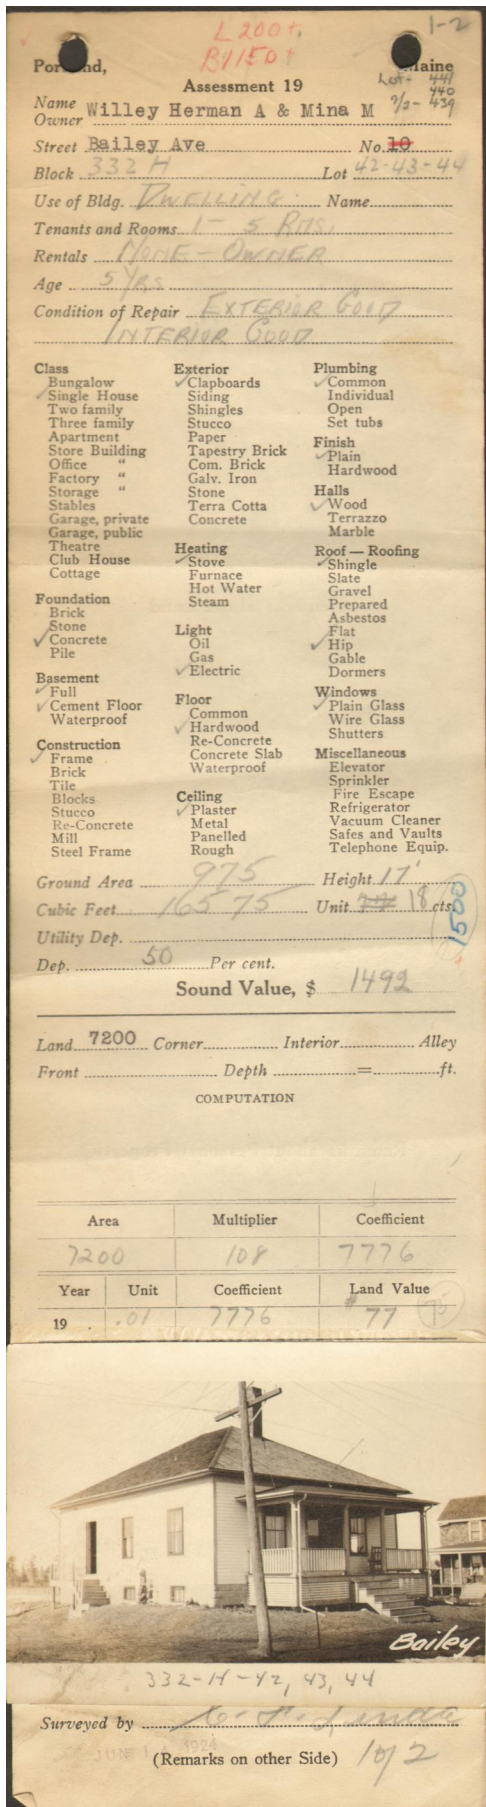 L 200+.
B 1150+
1-2
Portland, Maine
Assessment 19
Lot- 441
440
7/2- 439
Name Owner Willey Herman A & Mina M
Street Bailey Ave No. 10
Block 332 H Lot 42-43-44
Use of Bldg. DWELLING. Name
Tenants and Rooms 1 - 5 RMS.
Rentals NONE - OWNER
Age 5 YRS
Condition of Repair EXTERIOR GOOD
INTERIOR GOOD
Class
Bungalow
✓Single House
Two family
Three family
Apartment
Store Building
Office "
Factory "
Storage "
Stables
Garage, private
Garage, public
Theatre
Club House
Cottage
Foundation
Brick
Stone
✓Concrete
Pile
Basement
✓Full
✓Cement Floor
Waterproof
Construction
✓Frame
Brick
Tile
Blocks
Stucco
Re-Concrete
Mill
Steel Frame
Exterior
✓Clapboards
Siding
Shingles
Stucco
Paper
Tapestry Brick
Com. Brick
Galv. Iron
Stone
Terra Cotta
Concrete
Heating
✓Stove
Furnace
Hot Water
Steam
Light
Oil
Gas
✓Electric
Floor
Common
✓Hardwood
Re-Concrete
Concrete Slab
Waterproof
Ceiling
✓Plaster
Metal
Panelled
Rough
Plumbing
✓Common
Individual
Open
Set tubs
Finish
✓Plain
Hardwood
Halls
✓Wood
Terrazzo
Marble
Roof — Roofing
✓Shingle
Slate
Gravel
Prepared
Asbestos
Flat
✓Hip
Gable
Dormers
Windows
✓Plain Glass
Wire Glass
Shutters
Miscellaneous
Elevator
Sprinkler
Fire Escape
Refrigerator
Vacuum Cleaner
Safes and Vaults
Telephone Equip.
Ground Area 975 Height 17'
Cubic Feet 16575 Unit 18 cts.
1500
Utility Dep.
Dep. 50 Per cent.
Sound Value, $ 1492
Land 7200 Corner Interior Alley
Front Depth = ft.
COMPUTATION
Area Multiplier Coefficient
7200 108 7776
Year Unit Coefficient Land Value
19 . .01 7776 $ 77 75
Bailey
332-H-42, 43, 44
Surveyed by
JUN 1924
(Remarks on other Side) 1 of 2